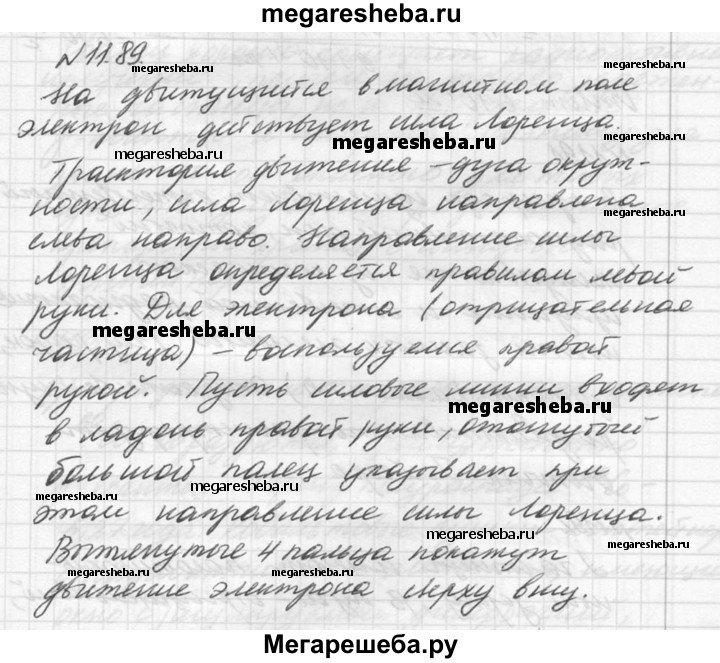 megaresheba.ru
N11.89.
megaresheba.ru
На движущийся в магнитном поле
megaresheba.ru
электрон действует сила Лоренца.
megaresheba.ru
megaresheba.ru
Траектория движения – дуга окруж-
ности, сила Лоренца направлена
megaresheba.ru
слева направо. Направление силы
Лоренца определяется правилом левой
руки. Для электрона (отрицательная
megaresheba.ru
частица) – воспользуемся правой
рукой. Пусть силовые линии входят
megaresheba.ru
в ладонь правой руки, отогнутый
большой палец указывает при
megaresheba.ru
megaresheba.ru
этом направление силы Лоренца.
megaresheba.ru
Вытянутые 4 пальца покажут
megaresheba.ru
движение электрона сверху вниз.
megaresheba.ru
Мегарешеба.ру